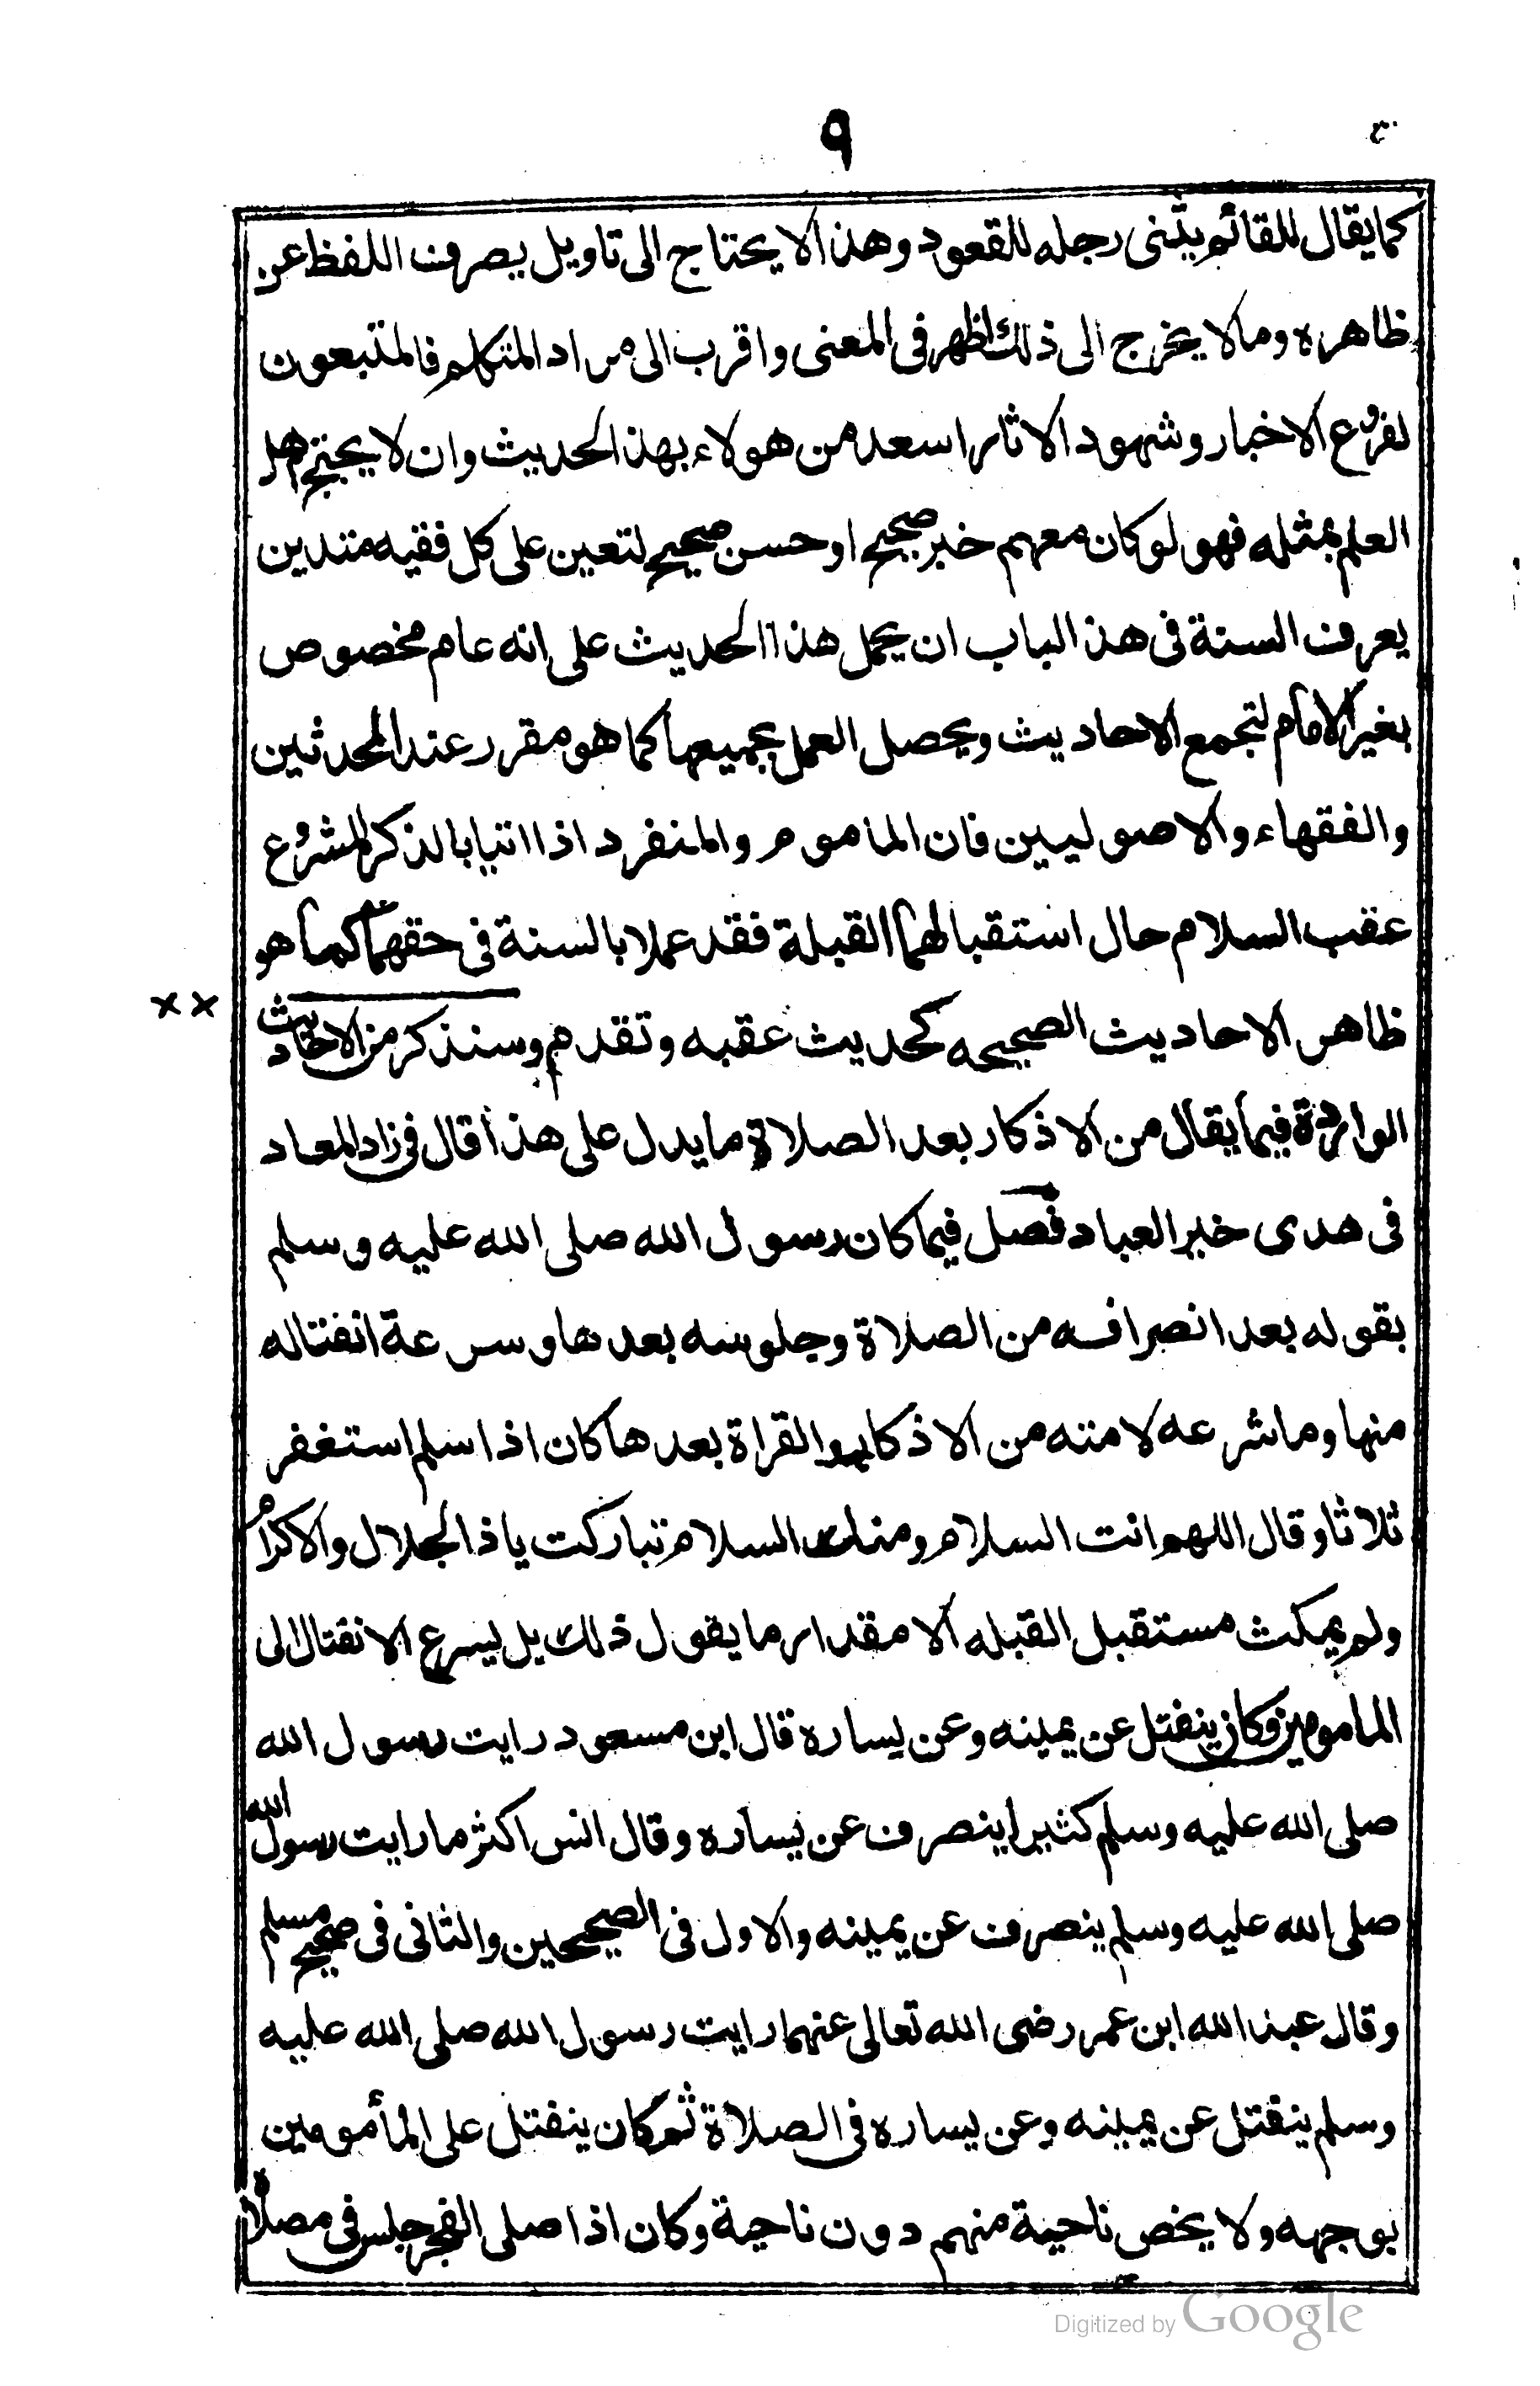 ٩
كما يقال للقائم يثنى رجله للقعود وهذا لا يحتاج الى تاويل بصرف اللفظ عن
ظاهره وما لا يخرج الى ذلك اظهر فى المعنى واقرب الى مراد المتكلم فالمتبعون
لفروع الاخبار وشهود الاثار اسعد من هولاء بهذا الحديث وان لا يحتج اهل
العلم بمثله فهو لو كان معهم خبر صحيح او حسن صحيح لتعين على كل فقيه متدين
يعرف السنة فى هذ الباب ان يحمل هذا الحديث على انه عام مخصوص
بغير الامام لتجمع الاحاديث ويحصل العمل بجميعها كما هو مقرر عند المحدثين
والفقهاء والاصوليين فان الماموم والمنفرد اذا اتيا بالذكر المشروع
عقب السلام حال استقبالهما القبلة فقد عملا بالسنة فى حقهما كما هو
ظاهر الاحاديث الصحيحه كحديث عقبه وتقدم وسنذكر من الاحاديث
الواردة فيما يقال من الاذكار بعد الصلاة ما يدل على هذا قال فى زاد المعاد
فى هدى خير العباد فصل فيما كان رسول الله صلى الله عليه وسلم
بقوله بعد انصرافه من الصلاة وجلوسه بعدها وسرعة انفتاله
منها وما شرعه لامته من الاذكار والقراة بعدها كان اذا سلم استغفر
ثلاثا وقال اللهم انت السلام ومنك السلام تباركت يا ذا الجلال والاكرام
ولم يمكث مستقبل القبله الا مقدار ما يقول ذلك بل يسرع الانفتال الى
المامومين وكان ينفتل عن يمينه وعن يساره قال ابن مسعود رايت رسول الله
صلى الله عليه وسلم كثيرا ينصرف عن يساره وقال انس اكثر ما رايت رسول الله
صلى الله عليه وسلم ينصرف عن يمينه والاول فى الصحيحين والثانى فى صحيح مسلم
وقال عبد الله ابن عمر رضى الله تعالى عنهما رايت رسول الله صلى الله عليه
وسلم ينفتل عن يمينه وعن يساره فى الصلاة ثم كان ينفتل على المأمومين
بوجهه ولا يخص ناحية منهم دون ناحية وكان اذا صلى الفجر جلس فى مصلاه
Digitized by Google